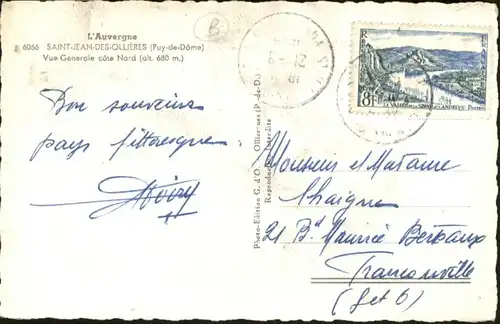 L'Auvergne
6066 SAINT-JEAN-DES-OLLIÈRES (Puy-de-Dôme)
Vue Generale côte Nord (alt. 680 m.)
B
Bon souvenir
pays pittoresque
Photo-Edition G. d'O. Ollier
Reproduction Interdite
8F
LA VALLÉE DE LA SEINE AUX ANDELYS
POSTES
Monsieur et Madame
Chaigne
21 Bd Maurice Berteaux
Franconville
(S et O)